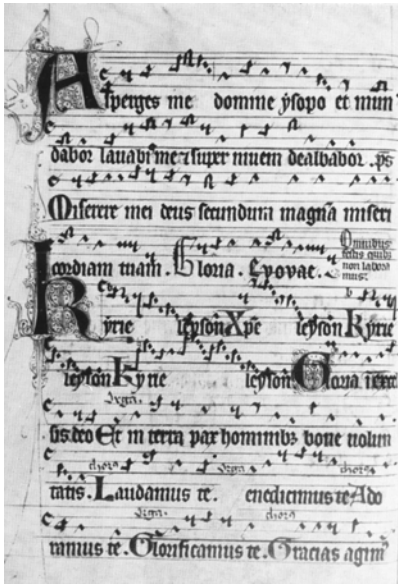 Asperges me domine ysopo et mun
dabor lauabi me ⁊ super niuem dealbabor . ps
Miserere mei deus secundum magnā miseri
cordiam tuam . Gloria . Euouae .
Omnibus
festis quibus
non labora
mus
Kyrie leyson Xpe leyson Kyrie
leyson Kyrie leyson Gloria in
Orgā.
sis deo Et in terra pax hominibꝫ bone uolun
chorꝰ Orgā chorꝰ
tatis . Laudamus te . enedicimus te Ado
Orgā chorꝰ
ramus te . Glorificamus te . Gracias agim